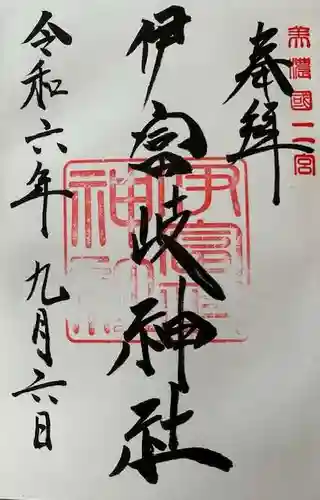 美濃國二宮
奉拝
伊富岐神社
令和六年九月六日